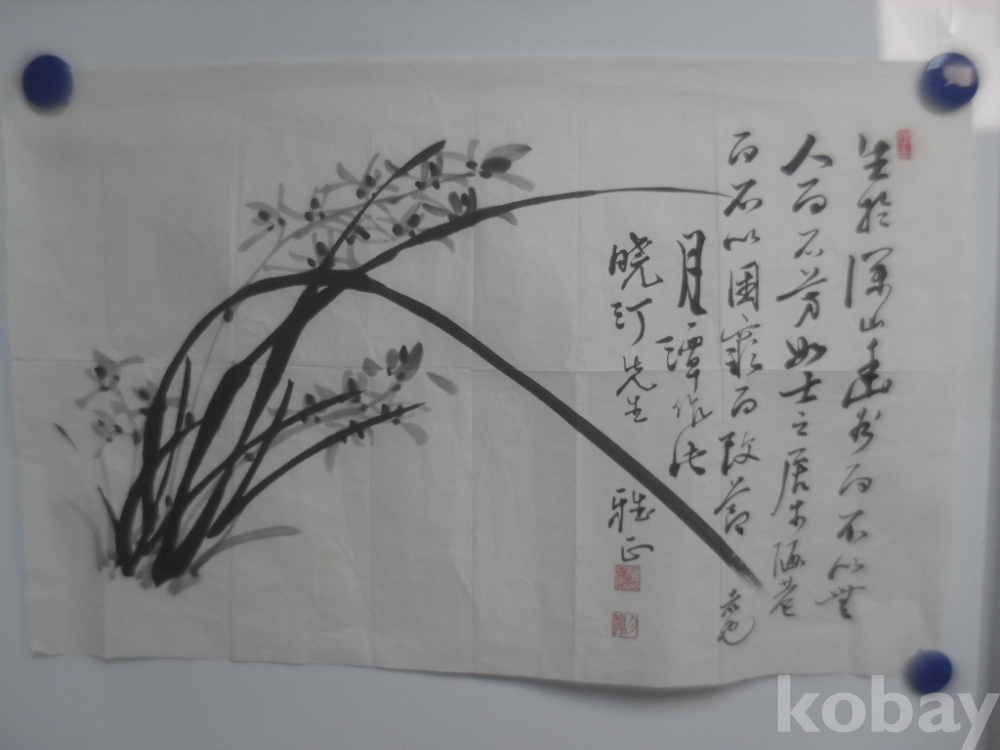 生於深山幽谷而不以無
人而不芳如士之居陋巷
而不以困窮而改節者也
月潭作法
曉汀先生 雅正
kobay